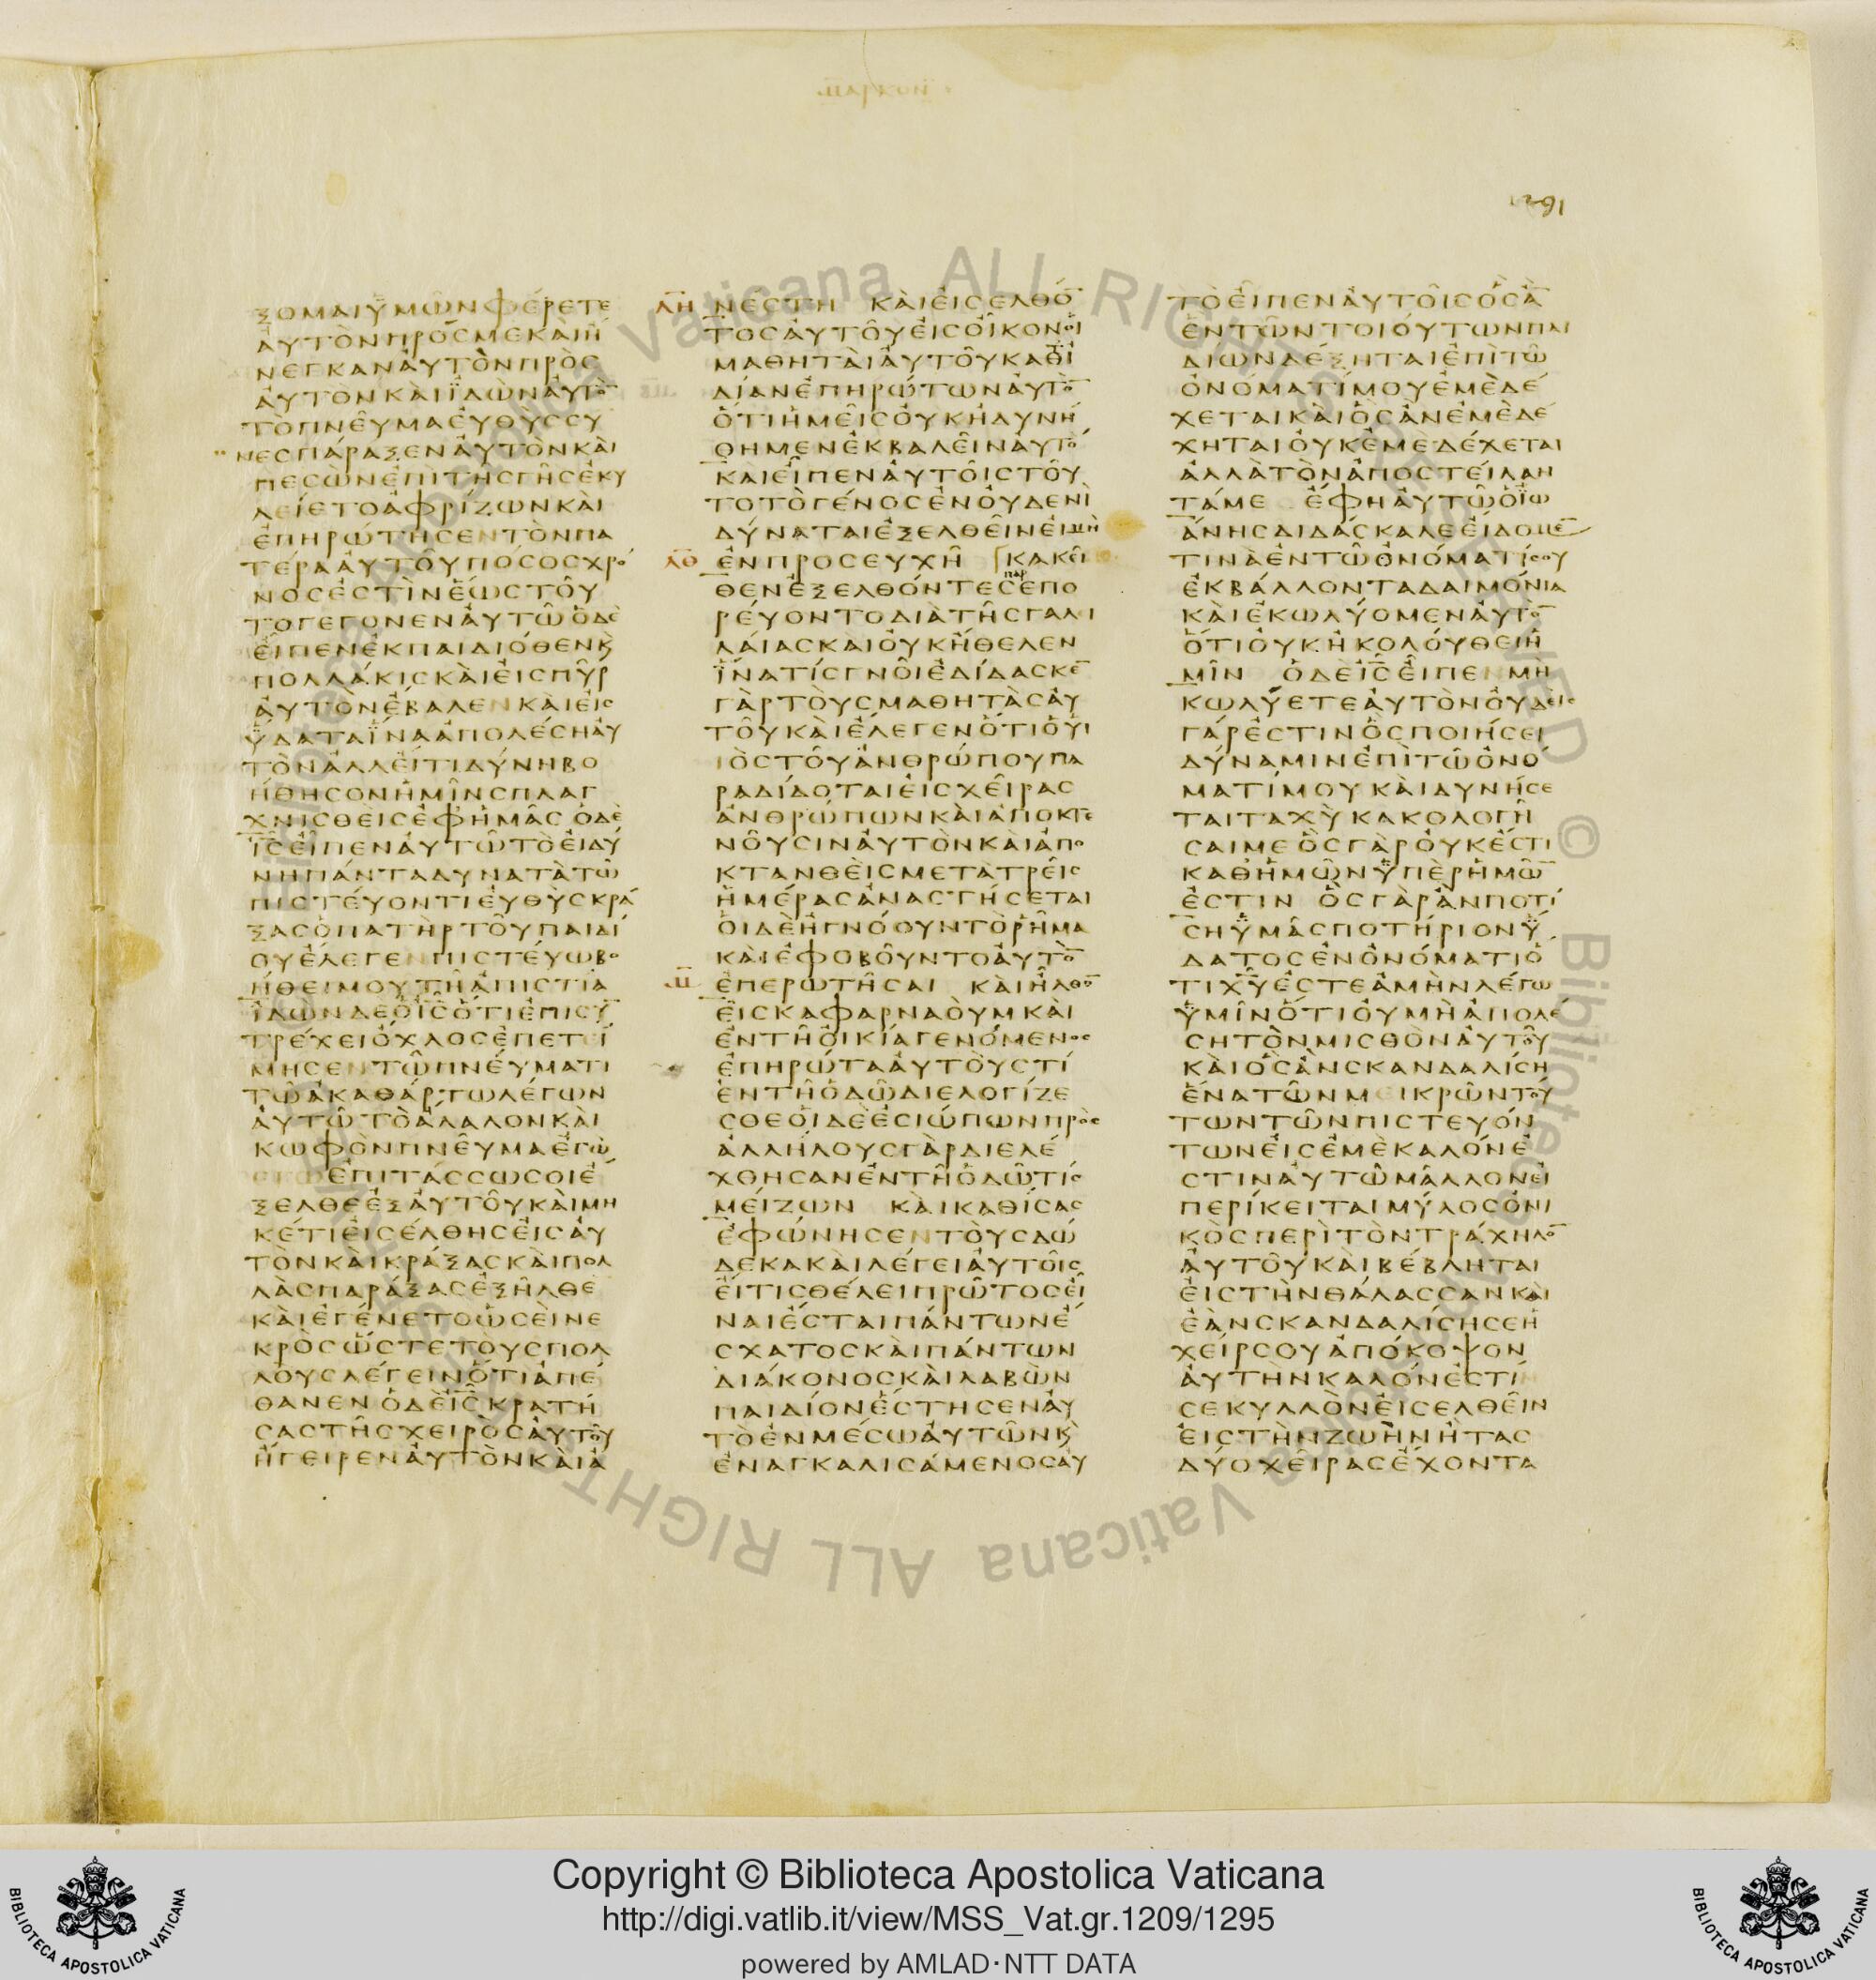 ΞΟΜΑΙΥΜΩΝΦΕΡΕΤΕ
ΑΥΤΟΝΠΡΟϹΜΕΚΑΙΗ
ΝΕΓΚΑΝΑΥΤΟΝΠΡΟϹ
ΑΥΤΟΝΚΑΙΪΔΩΝΑΥΤΟ̅
ΤΟΠΝΕΥΜΑΕΥΘΥϹϹΥ
ΝΕϹΠΑΡΑΞΕΝΑΥΤΟΝΚΑΙ
ΠΕϹΩΝΕΠΙΤΗϹΓΗϹΕΚΥ
ΛΕΙΕΤΟΑΦΡΙΖΩΝΚΑΙ
ΕΠΗΡΩΤΗϹΕΝΤΟΝΠΑ
ΤΕΡΑΑΥΤΟΥΠΟϹΟϹΧΡΟ
ΝΟϹΕϹΤΙΝΕΩϹΤΟΥ
ΤΟΓΕΓΟΝΕΝΑΥΤΩΟΔΕ
ΕΙΠΕΝΕΚΠΑΙΔΙΟΘΕΝΚ
ΠΟΛΛΑΚΙϹΚΑΙΕΙϹΠΥΡ
ΑΥΤΟΝΕΒΑΛΕΝΚΑΙΕΙϹ
ΫΔΑΤΑΪΝΑΑΠΟΛΕϹΗΑΥ
ΤΟΝΑΛΛΕΙΤΙΔΥΝΗΒΟ
ΗΘΗϹΟΝΗΜΙΝϹΠΛΑΓ
ΧΝΙϹΘΕΙϹΕΦΗΜΑϹ ΟΔΕ
Ι̅Ϲ̅ΕΙΠΕΝΑΥΤΩΤΟΕΙΔΥ
ΝΗΠΑΝΤΑΔΥΝΑΤΑΤΩ
ΠΙϹΤΕΥΟΝΤΙΕΥΘΥϹΚΡΑ
ΞΑϹΟΠΑΤΗΡΤΟΥΠΑΙΔΙ
ΟΥΕΛΕΓΕΝΠΙϹΤΕΥΩΒΟ
ΗΘΕΙΜΟΥΤΗΑΠΙϹΤΙΑ
ΪΔΩΝΔΕΟΙ̅Ϲ̅ΟΤΙΕΠΙϹΥ̅
ΤΡΕΧΕΙΟΧΛΟϹΕΠΕΤΕΙ
ΜΗϹΕΝΤΩΠΝΕΥΜΑΤΙ
ΤΩΑΚΑΘΑΡΤΩΛΕΓΩΝ
ΑΥΤΩΤΟΑΛΑΛΟΝΚΑΙ
ΚΩΦΟΝΠΝΕΥΜΑΕΓΩ
ΕΓΩΕΠΙΤΑϹϹΩϹΟΙΕ
ΞΕΛΘΕΕΞΑΥΤΟΥΚΑΙΜΗ
ΚΕΤΙΕΙϹΕΛΘΗϹΕΙϹΑΥ
ΤΟΝΚΑΙΚΡΑΞΑϹΚΑΙΠΟΛ
ΛΑϹΠΑΡΑΞΑϹΕΞΗΛΘΕ
ΚΑΙΕΓΕΝΕΤΟΩϹΕΙΝΕ
ΚΡΟϹΩϹΤΕΤΟΥϹΠΟΛ
ΛΟΥϹΛΕΓΕΙΝΟΤΙΑΠΕ
ΘΑΝΕΝ ΟΔΕΙ̅Ϲ̅ΚΡΑΤΗ
ϹΑϹΤΗϹΧΕΙΡΟϹΑΥΤΟΥ
ΗΓΕΙΡΕΝΑΥΤΟΝΚΑΙΑ
ΛΗ ΝΕϹΤΗ ΚΑΙΕΙϹΕΛΘΟ̅
ΤΟϹΑΥΤΟΥΕΙϹΟΙΚΟΝΟΙ
ΜΑΘΗΤΑΙΑΥΤΟΥΚΑΘΙ
ΔΙΑΝΕΠΗΡΩΤΩΝΑΥΤΟ̅
ΟΤΙΗΜΕΙϹΟΥΚΗΔΥΝΗ
ΘΗΜΕΝΕΚΒΑΛΕΙΝΑΥΤΟ
ΚΑΙΕΙΠΕΝΑΥΤΟΙϹΤΟΥ
ΤΟΤΟΓΕΝΟϹΕΝΟΥΔΕΝΙ
ΔΥΝΑΤΑΙΕΞΕΛΘΕΙΝΕΙΜΗ
ΛΘ ΕΝΠΡΟϹΕΥΧΗ ΚΑΚΕΙ
ΘΕΝΕΞΕΛΘΟΝΤΕϹΠΑΡΕΠΟ
ΡΕΥΟΝΤΟΔΙΑΤΗϹΓΑΛΙ
ΛΑΙΑϹΚΑΙΟΥΚΗΘΕΛΕΝ
ΪΝΑΤΙϹΓΝΟΙΕΔΙΔΑϹΚΕ̅
ΓΑΡΤΟΥϹΜΑΘΗΤΑϹΑΥ
ΤΟΥΚΑΙΕΛΕΓΕΝΟΤΙΟΥΙ
ΙΟϹΤΟΥΑΝΘΡΩΠΟΥΠΑ
ΡΑΔΙΔΟΤΑΙΕΙϹΧΕΙΡΑϹ
ΑΝΘΡΩΠΩΝΚΑΙΑΠΟΚΤΕ
ΝΟΥϹΙΝΑΥΤΟΝΚΑΙΑΠΟ
ΚΤΑΝΘΕΙϹΜΕΤΑΤΡΕΙϹ
ΗΜΕΡΑϹΑΝΑϹΤΗϹΕΤΑΙ
ΟΙΔΕΗΓΝΟΟΥΝΤΟΡΗΜΑ
ΚΑΙΕΦΟΒΟΥΝΤΟΑΥΤΟ̅
Μ ΕΠΕΡΩΤΗϹΑΙ ΚΑΙΗΛΘΟ̅
ΕΙϹΚΑΦΑΡΝΑΟΥΜΚΑΙ
ΕΝΤΗΟΙΚΙΑΓΕΝΟΜΕΝΟϹ
ΕΠΗΡΩΤΑΑΥΤΟΥϹΤΙ
ΕΝΤΗΟΔΩΔΙΕΛΟΓΙΖΕ
ϹΘΕΟΙΔΕΕϹΙΩΠΩΝΠΡΟϹ
ΑΛΛΗΛΟΥϹΓΑΡΔΙΕΛΕ
ΧΘΗϹΑΝΕΝΤΗΟΔΩΤΙϹ
ΜΕΙΖΩΝ ΚΑΙΚΑΘΙϹΑϹ
ΕΦΩΝΗϹΕΝΤΟΥϹΔΩ
ΔΕΚΑΚΑΙΛΕΓΕΙΑΥΤΟΙϹ
ΕΙΤΙϹΘΕΛΕΙΠΡΩΤΟϹΕΙ
ΝΑΙΕϹΤΑΙΠΑΝΤΩΝΕ
ϹΧΑΤΟϹΚΑΙΠΑΝΤΩΝ
ΔΙΑΚΟΝΟϹΚΑΙΛΑΒΩΝ
ΠΑΙΔΙΟΝΕϹΤΗϹΕΝΑΥ
ΤΟΕΝΜΕϹΩΑΥΤΩΝΚ
ΕΝΑΓΚΑΛΙϹΑΜΕΝΟϹΑΥ
ΤΟΕΙΠΕΝΑΥΤΟΙϹΟϹΑ̅
ΕΝΤΩΝΤΟΙΟΥΤΩΝΠΑΙ
ΔΙΩΝΔΕΞΗΤΑΙΕΠΙΤΩ
ΟΝΟΜΑΤΙΜΟΥΕΜΕΔΕ
ΧΕΤΑΙΚΑΙΟϹΑΝΕΜΕΔΕ
ΧΗΤΑΙΟΥΚΕΜΕΔΕΧΕΤΑΙ
ΑΛΛΑΤΟΝΑΠΟϹΤΕΙΛΑΝ
ΤΑΜΕ ΕΦΗΑΥΤΩΟΪΩ
ΑΝΗϹΔΙΔΑϹΚΑΛΕΕΙΔΟΜΕ̅
ΤΙΝΑΕΝΤΩΟΝΟΜΑΤΙϹΟΥ
ΕΚΒΑΛΛΟΝΤΑΔΑΙΜΟΝΙΑ
ΚΑΙΕΚΩΛΥΟΜΕΝΑΥΤΟ̅
ΟΤΙΟΥΚΗΚΟΛΟΥΘΕΙΗ
ΜΙΝ ΟΔΕΙ̅Ϲ̅ΕΙΠΕΝΜΗ
ΚΩΛΥΕΤΕΑΥΤΟΝΟΥΔΕΙϹ
ΓΑΡΕϹΤΙΝΟϹΠΟΙΗϹΕΙ
ΔΥΝΑΜΙΝΕΠΙΤΩΟΝΟ
ΜΑΤΙΜΟΥΚΑΙΔΥΝΗϹΕ
ΤΑΙΤΑΧΥΚΑΚΟΛΟΓΗ
ϹΑΙΜΕΟϹΓΑΡΟΥΚΕϹΤΙ
ΚΑΘΗΜΩΝΫΠΕΡΗΜΩ̅
ΕϹΤΙΝ ΟϹΓΑΡΑΝΠΟΤΙ
ϹΗΫΜΑϹΠΟΤΗΡΙΟΝΫ
ΔΑΤΟϹΕΝΟΝΟΜΑΤΙΟ
ΤΙΧ̅Υ̅ΕϹΤΕΑΜΗΝΛΕΓΩ
ΫΜΙΝΟΤΙΟΥΜΗΑΠΟΛΕ
ϹΗΤΟΝΜΙϹΘΟΝΑΥΤΟΥ
ΚΑΙΟϹΑΝϹΚΑΝΔΑΛΙϹΗ
ΕΝΑΤΩΝΜΕΙΚΡΩΝΤΟΥ
ΤΩΝΤΩΝΠΙϹΤΕΥΟΝ
ΤΩΝΕΙϹΕΜΕΚΑΛΟΝΕ
ϹΤΙΝΑΥΤΩΜΑΛΛΟΝΕΙ
ΠΕΡΙΚΕΙΤΑΙΜΥΛΟϹΟΝΙ
ΚΟϹΠΕΡΙΤΟΝΤΡΑΧΗΛΟ̅
ΑΥΤΟΥΚΑΙΒΕΒΛΗΤΑΙ
ΕΙϹΤΗΝΘΑΛΑϹϹΑΝΚΑΙ
ΕΑΝϹΚΑΝΔΑΛΙϹΗϹΕΗ
ΧΕΙΡϹΟΥΑΠΟΚΟΨΟΝ
ΑΥΤΗΝΚΑΛΟΝΕϹΤΙ
ϹΕΚΥΛΛΟΝΕΙϹΕΛΘΕΙΝ
ΕΙϹΤΗΝΖΩΗΝΗΤΑϹ
ΔΥΟΧΕΙΡΑϹΕΧΟΝΤΑ
Copyright © Biblioteca Apostolica Vaticana
http://digi.vatlib.it/view/MSS_Vat.gr.1209/1295
powered by AMLAD·NTT DATA
BIBLIOTECA APOSTOLICA VATICANA
BIBLIOTECA APOSTOLICA VATICANA